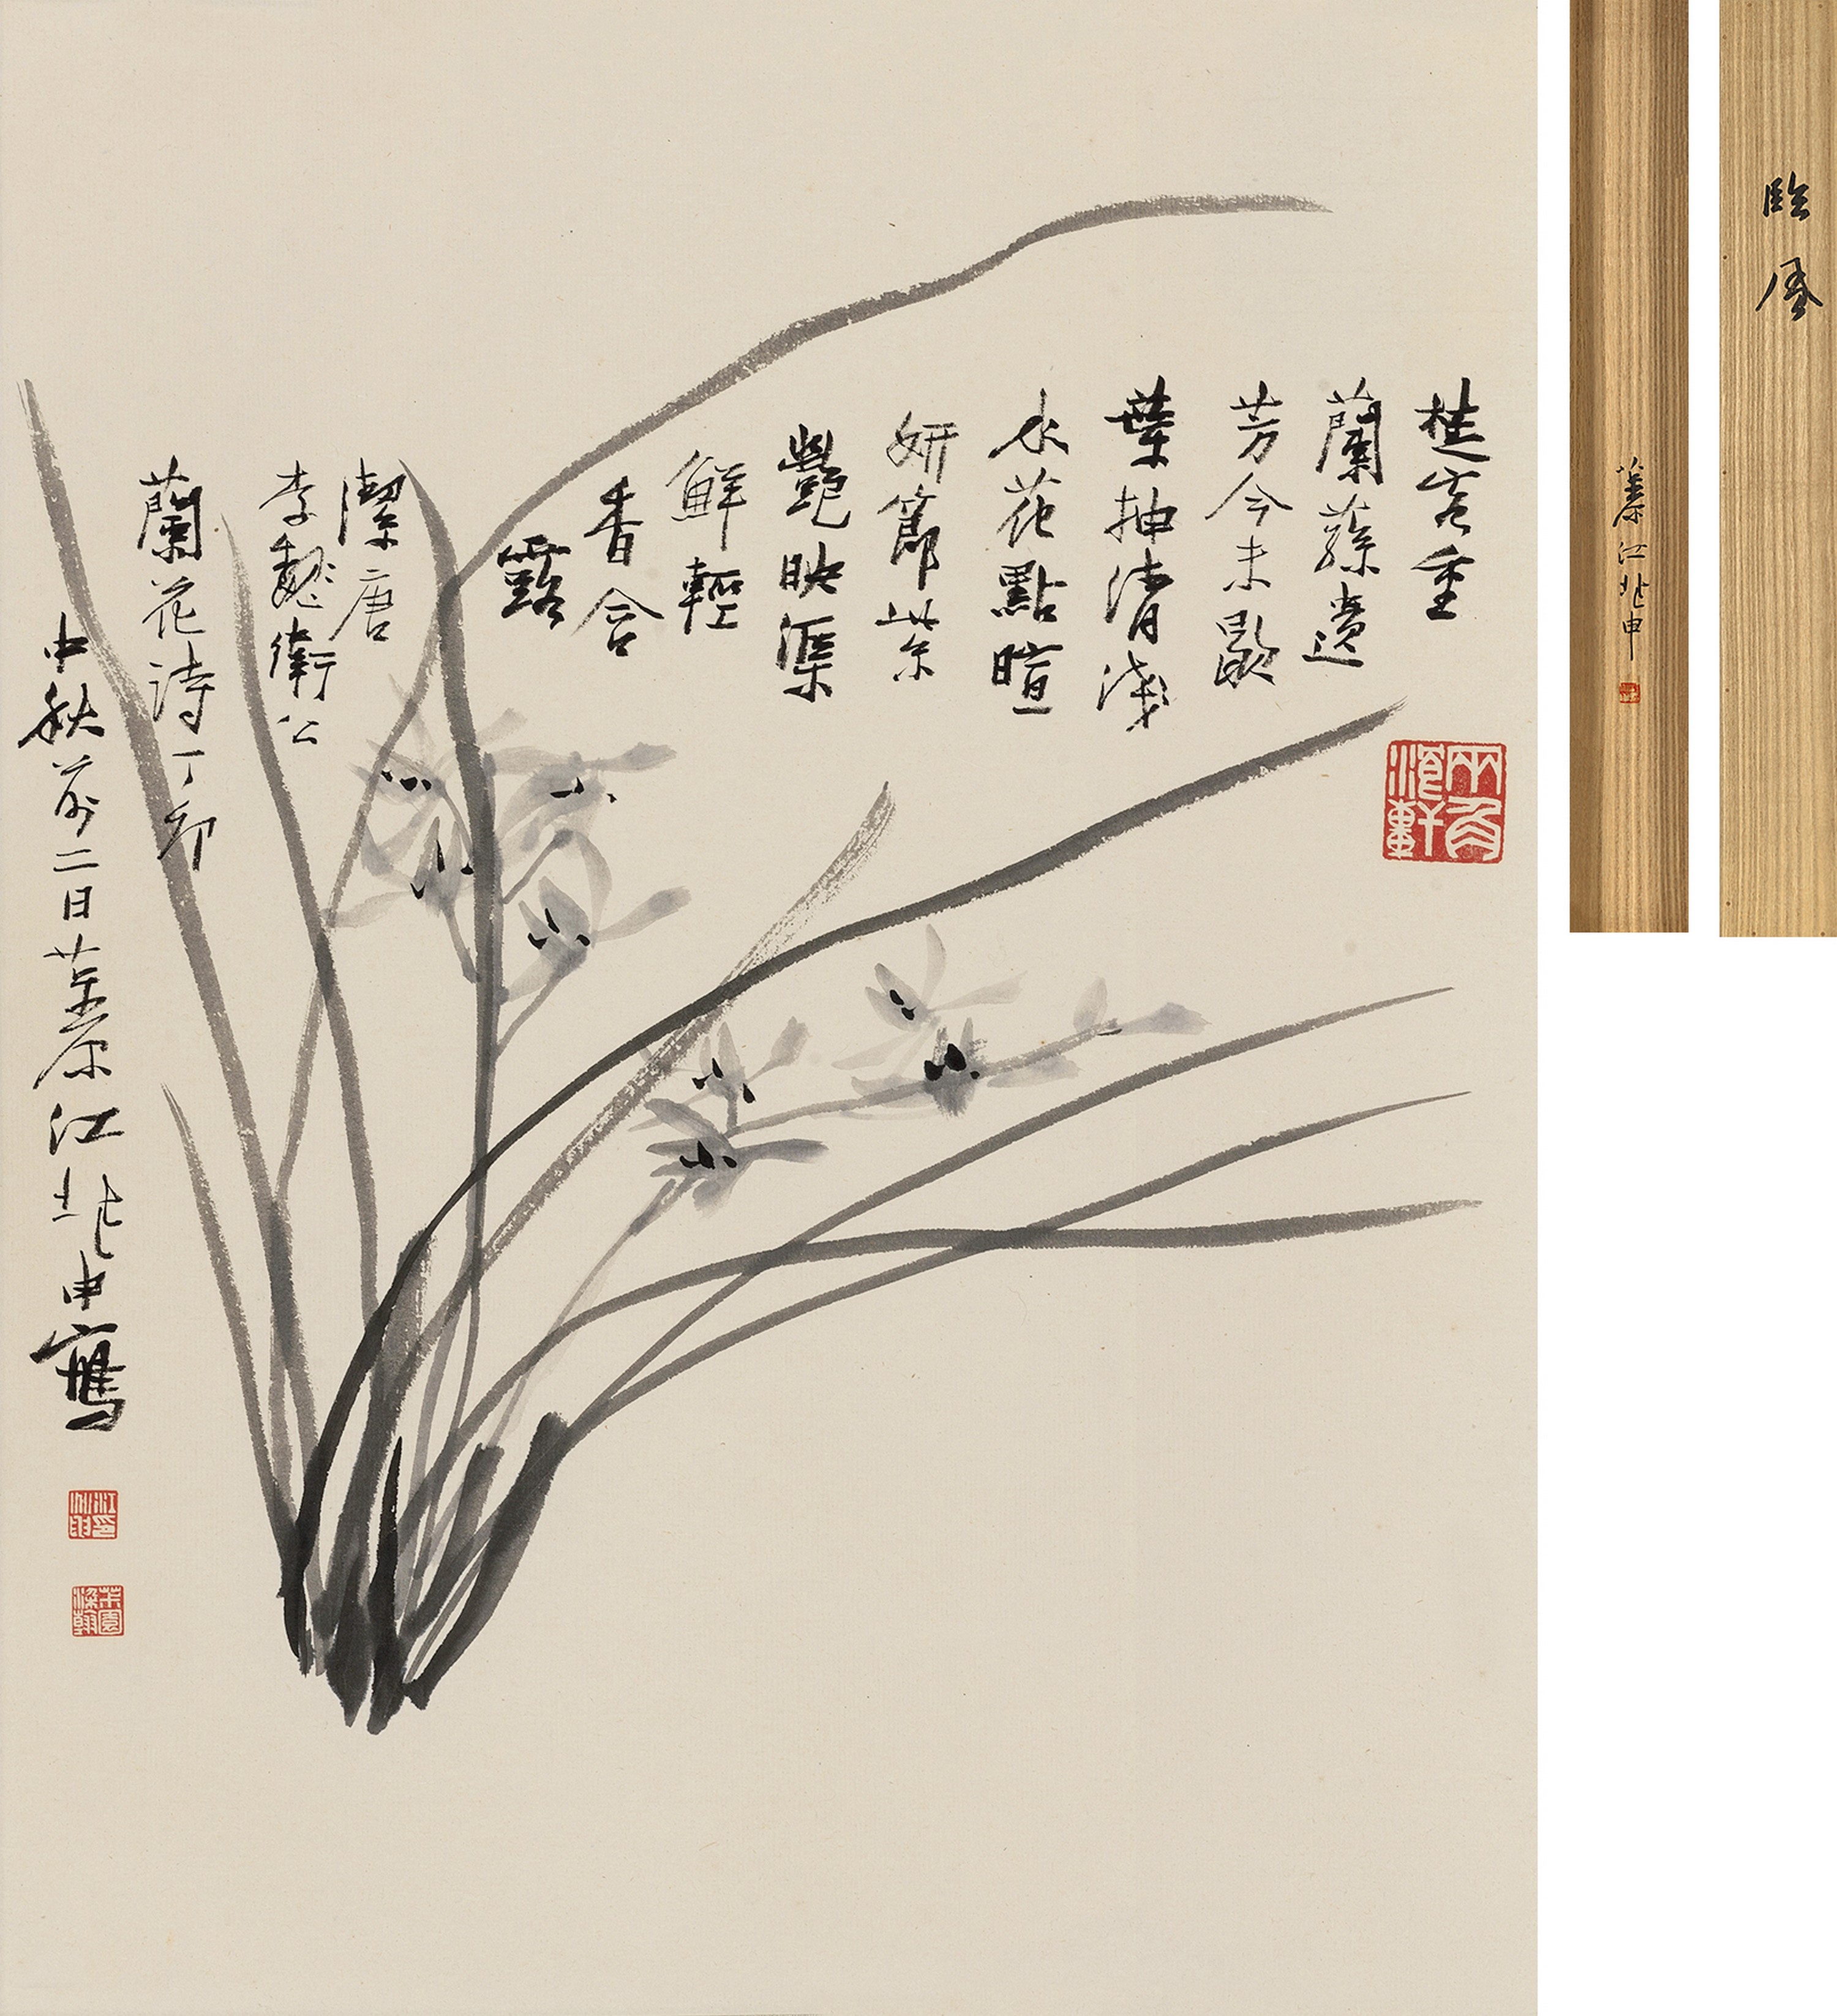 楚客重
蘭蓀遺
芳今未歇
葉抽清淺
水花點暄
妍節紫
豔映渠
鮮輕
香含
露
潔唐
李衛公
蘭花詩丁卯
中秋前二日茮原江兆申寫
江兆申印
臨風
茮原江兆申